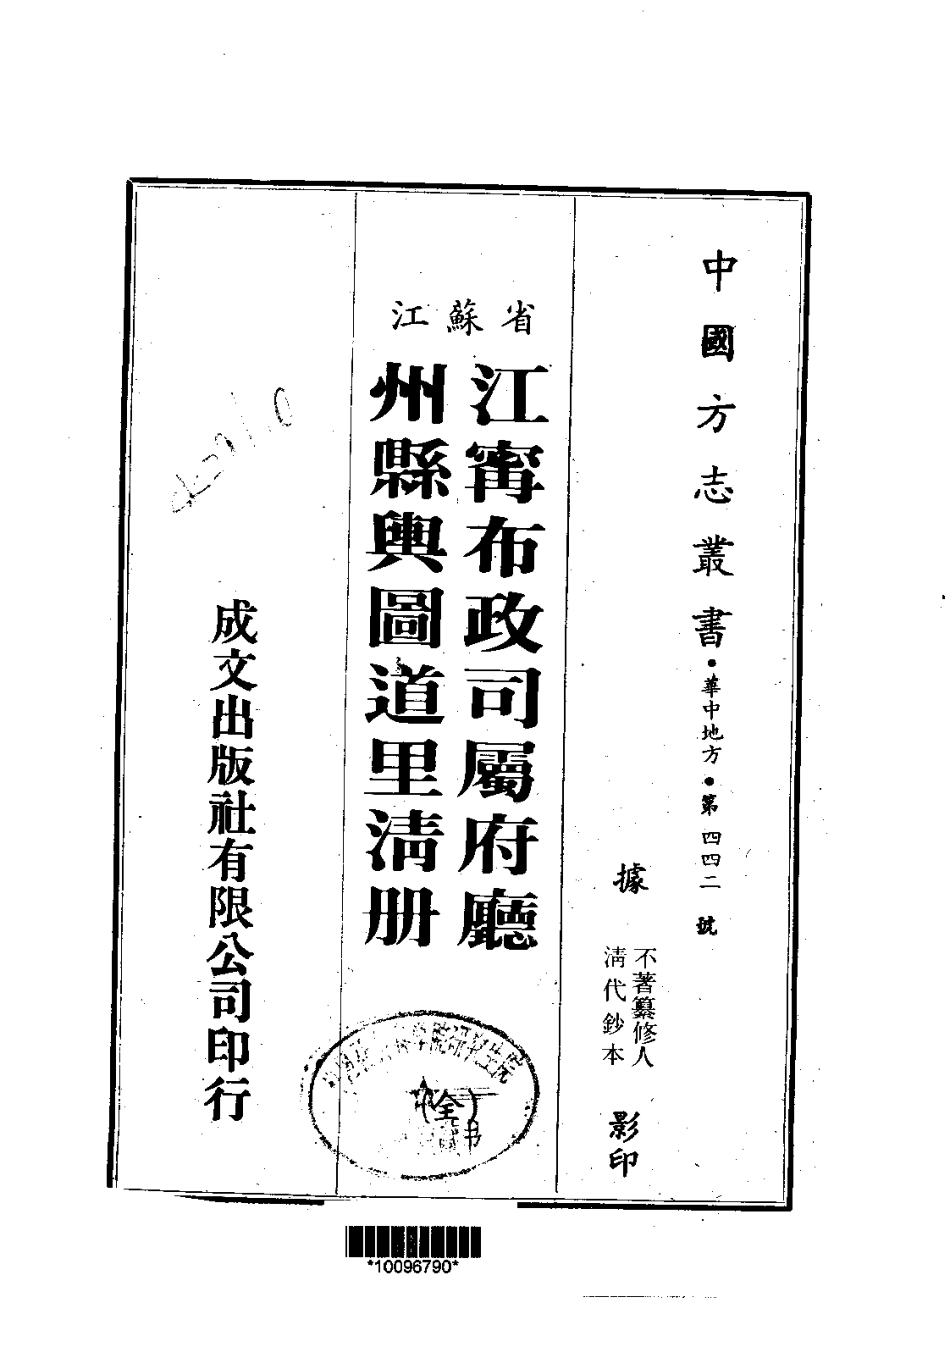 中國方志叢書•華中地方•第四四二號
據
不著纂修人
清代鈔本
影印
江蘇省
江甯布政司屬府廳
州縣輿圖道里清册
(全)
成文出版社有限公司印行
*10096790*